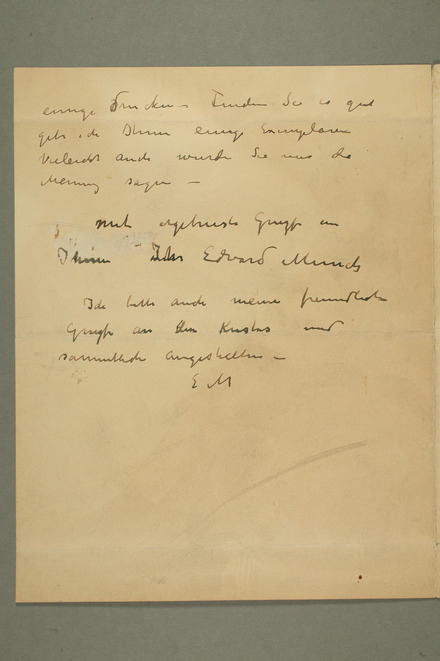 einige Drucken – Finden Sie es gut
gebe ich Ihnen einige Exemplaren
Vieleicht auch wurde Sie uns die
Menung sagen –
mit ergebenste Grüsse an
Ihnen Ihr Edvard Munch
Ich bitte auch meine freundliche
Grüsse an Kustos und
sammtliche angestellten –
E M